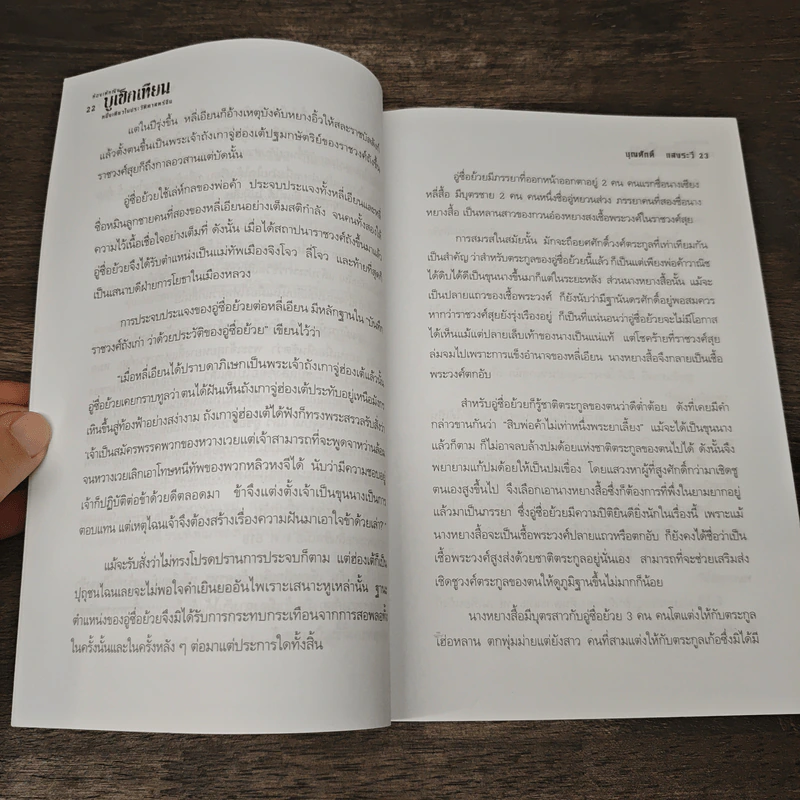 22
บูเช็กเทียน
แต่ในปีรุ่งขึ้น หลี่เอียนก็อ้างเหตุบังคับหยางอิ้วให้สละราชบัลลังก์
แล้วตั้งตนขึ้นเป็นพระเจ้าถังเกาจู่ฮ่องเต้ปฐมกษัตริย์ของราชวงศ์ถังขึ้น
ราชวงศ์สุยก็ถึงกาลอวสานแต่บัดนั้น
อู่ซื่อย้วยใช้เล่ห์กลของพ่อค้า ประจบประแจงทั้งหลี่เอียนและหลี่
ซื่อหมินลูกชายคนที่สองของหลี่เอียนอย่างเต็มสติกำลัง จนคนทั้งสองให้
ความไว้เนื้อเชื่อใจอย่างเต็มที่ ดังนั้น เมื่อได้สถาปนาราชวงศ์ถังขึ้นมาแล้ว
อู่ซื่อย้วยจึงได้รับตำแหน่งเป็นแม่ทัพเมืองจิงโจว ลี่โจว และท้ายที่สุดก็
เป็นเสนาบดีฝ่ายการโยธาในเมืองหลวง
การประจบประแจงของอู่ซื่อย้วยต่อหลี่เอียน มีหลักฐานใน "บันทึก
ราชวงศ์ถังเก่า ว่าด้วยประวัติของอู่ซื่อย้วย" เขียนไว้ว่า
"เมื่อหลี่เอียนได้ปราบดาภิเษกเป็นพระเจ้าถังเกาจู่ฮ่องเต้แล้วนั้น
อู่ซื่อย้วยเคยกราบทูลว่า ตนได้ฝันเห็นถังเกาจู่ฮ่องเต้ประทับอยู่เหนือมังกร
เห็นขึ้นสู่ท้องฟ้าอย่างสง่างาม ถังเกาจู่ฮ่องเต้ได้ฟังก็ทรงพระสรวลรับสั่งว่า
เจ้าเป็นสมัครพรรคพวกของหวางเวย แต่เจ้าสามารถที่จะพูดจาหว่านล้อม
จนหวางเวยเลิกเอาโทษหนีทัพของพวกหลิวหงจีได้ นับว่ามีความชอบอยู่
เจ้าก็ปฏิบัติต่อข้าด้วยดีตลอดมา ข้าจึงแต่งตั้งเจ้าเป็นขุนนางเป็นการ
ตอบแทน แต่เหตุไฉนเจ้าจึงต้องสร้างเรื่องความฝันมาเอาใจข้าด้วยเล่า?"
แม้จะรับสั่งว่าไม่ทรงโปรดปรานการประจบก็ตาม แต่ฮ่องเต้ก็เป็น
ปุถุชนไฉนเลยจะไม่พอใจคำเยินยออันไพเราะเสนาะหูเหล่านั้น ฐานะ
ตำแหน่งของอู่ซื่อย้วยจึงมิได้รับการกระทบกระเทือนจากการสอพลอทั้ง
ในครั้งนั้นและในครั้งหลัง ๆ ต่อมาแต่ประการใดทั้งสิ้น
บุญศักดิ์ แสงระวี 23
อู่ซื่อย้วยมีภรรยาที่ออกหน้าออกตาอยู่ 2 คน คนแรกชื่อนางเซียง
หลี่สื้อ มีบุตรชาย 2 คน คนหนึ่งชื่ออู่หยวนส่วง ภรรยาคนที่สองชื่อนาง
หยางสื้อ เป็นหลานสาวของกวนอ๋องหยางสงเชื้อพระวงศ์ในราชวงศ์สุย
การสมรสในสมัยนั้น มักจะถือยศศักดิ์วงศ์ตระกูลที่เท่าเทียมกัน
เป็นสำคัญ ว่าสำหรับตระกูลของอู่ซื่อย้วยนี้แล้ว ก็เป็นแต่เพียงพ่อค้าวาณิช
ได้ดิบได้ดีเป็นขุนนางขึ้นมาก็แต่ในระยะหลัง ส่วนนางหยางสื้อนั้น แม้จะ
เป็นปลายแถวของเชื้อพระวงศ์ ก็ยังนับว่ามีฐานันดรศักดิ์อยู่พอสมควร
หากว่าราชวงศ์สุยยังรุ่งเรืองอยู่ ก็เป็นที่แน่นอนว่าอู่ซื่อย้วยจะไม่มีโอกาส
ได้เห็นแม้แต่ปลายเล็บเท้าของนางเป็นแน่แท้ แต่โชคร้ายที่ราชวงศ์สุย
ล่มจมไปเพราะการแข็งอำนาจของหลี่เอียน นางหยางสื้อจึงกลายเป็นเชื้อ
พระวงศ์ตกอับ
สำหรับอู่ซื่อย้วยก็รู้ชาติตระกูลของตนว่าดีต่ำด้อย ดังที่เคยมีคำ
กล่าวขานกันว่า "สิบพ่อค้าไม่เท่าหนึ่งพระยาเลี้ยง" แม้จะได้เป็นขุนนาง
แล้วก็ตาม ก็ไม่อาจลบล้างปมด้อยแห่งชาติตระกูลของตนไปได้ ดังนั้นจึง
พยายามแก้ปมด้อยให้เป็นปมเขื่อง โดยแสวงหาผู้ที่สูงศักดิ์กว่ามาเชิดชู
ตนเองสูงขึ้นไป จึงเลือกเอานางหยางสื้อซึ่งก็ต้องการที่พึ่งในยามยากอยู่
แล้วมาเป็นภรรยา ซึ่งอู่ซื่อย้วยมีความปิติยินดียิ่งนักในเรื่องนี้ เพราะแม้
นางหยางสื้อจะเป็นเชื้อพระวงศ์ปลายแถวหรือตกอับ ก็ยังคงได้ชื่อว่าเป็น
เชื้อพระวงศ์สูงส่งด้วยชาติตระกูลอยู่นั่นเอง สามารถที่จะช่วยเสริมส่ง
เชิดชูวงศ์ตระกูลของตนให้ดูภูมิฐานขึ้นไม่มากก็น้อย
นางหยางสื้อมีบุตรสาวกับอู่ซื่อย้วย 3 คน คนโตแต่งให้กับตระกูล
โฮ่อหลาน ตกพุ่มม่ายแต่ยังสาว คนที่สามแต่งให้กับตระกูลเก้อซึ่งมิได้มี